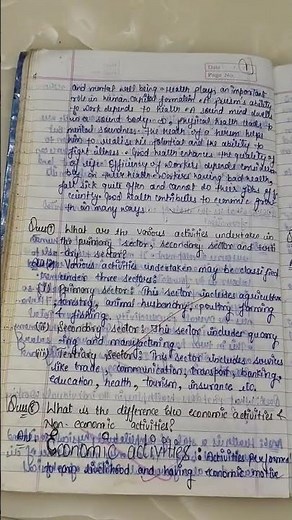 Date
Page No. 1
and mental well being. Health plays an important
role in human capital formation. A person's ability
to work depends to health. A sound mind dwells
in a sound body. physical health leads to
mental soundness. The health of a person helps
him to realise his potential and the ability to
fight illness. Good health enhances the quality of
of life. Efficiency of workers depends
on their health. Workers having bad health
fall sick quite often and cannot do their jobs
Good health contributes to economic growth
in many ways.
Ques What are the various activities undertaken in
the primary sector, secondary sector and
sector?
Various activities undertaken may be classified
under three sectors:
(i) Primary sector: This sector includes agriculture
forestry, animal husbandry, poultry farming
& fishing.
(ii) Secondary sector: This sector includes quarry
ing and manufacturing.
(iii) Tertiary sector: This sector includes services
like trade, communication, transport, banking,
education, health, tourism, insurance
Ques What is the difference b/w economic activities &
Non-economic activities?
Economic activities: Activities performed
to earn livelihood and having economic motive